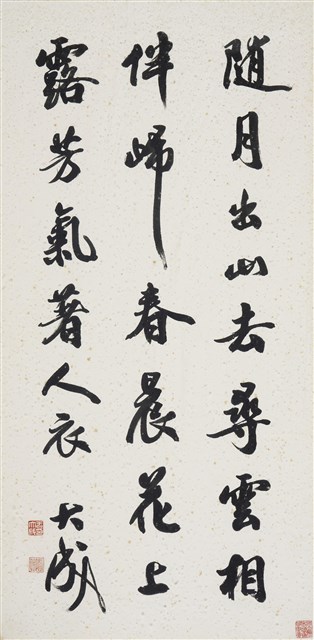 随月出山去尋雲相
伴歸春晨花上
露芳氣著人衣 大成